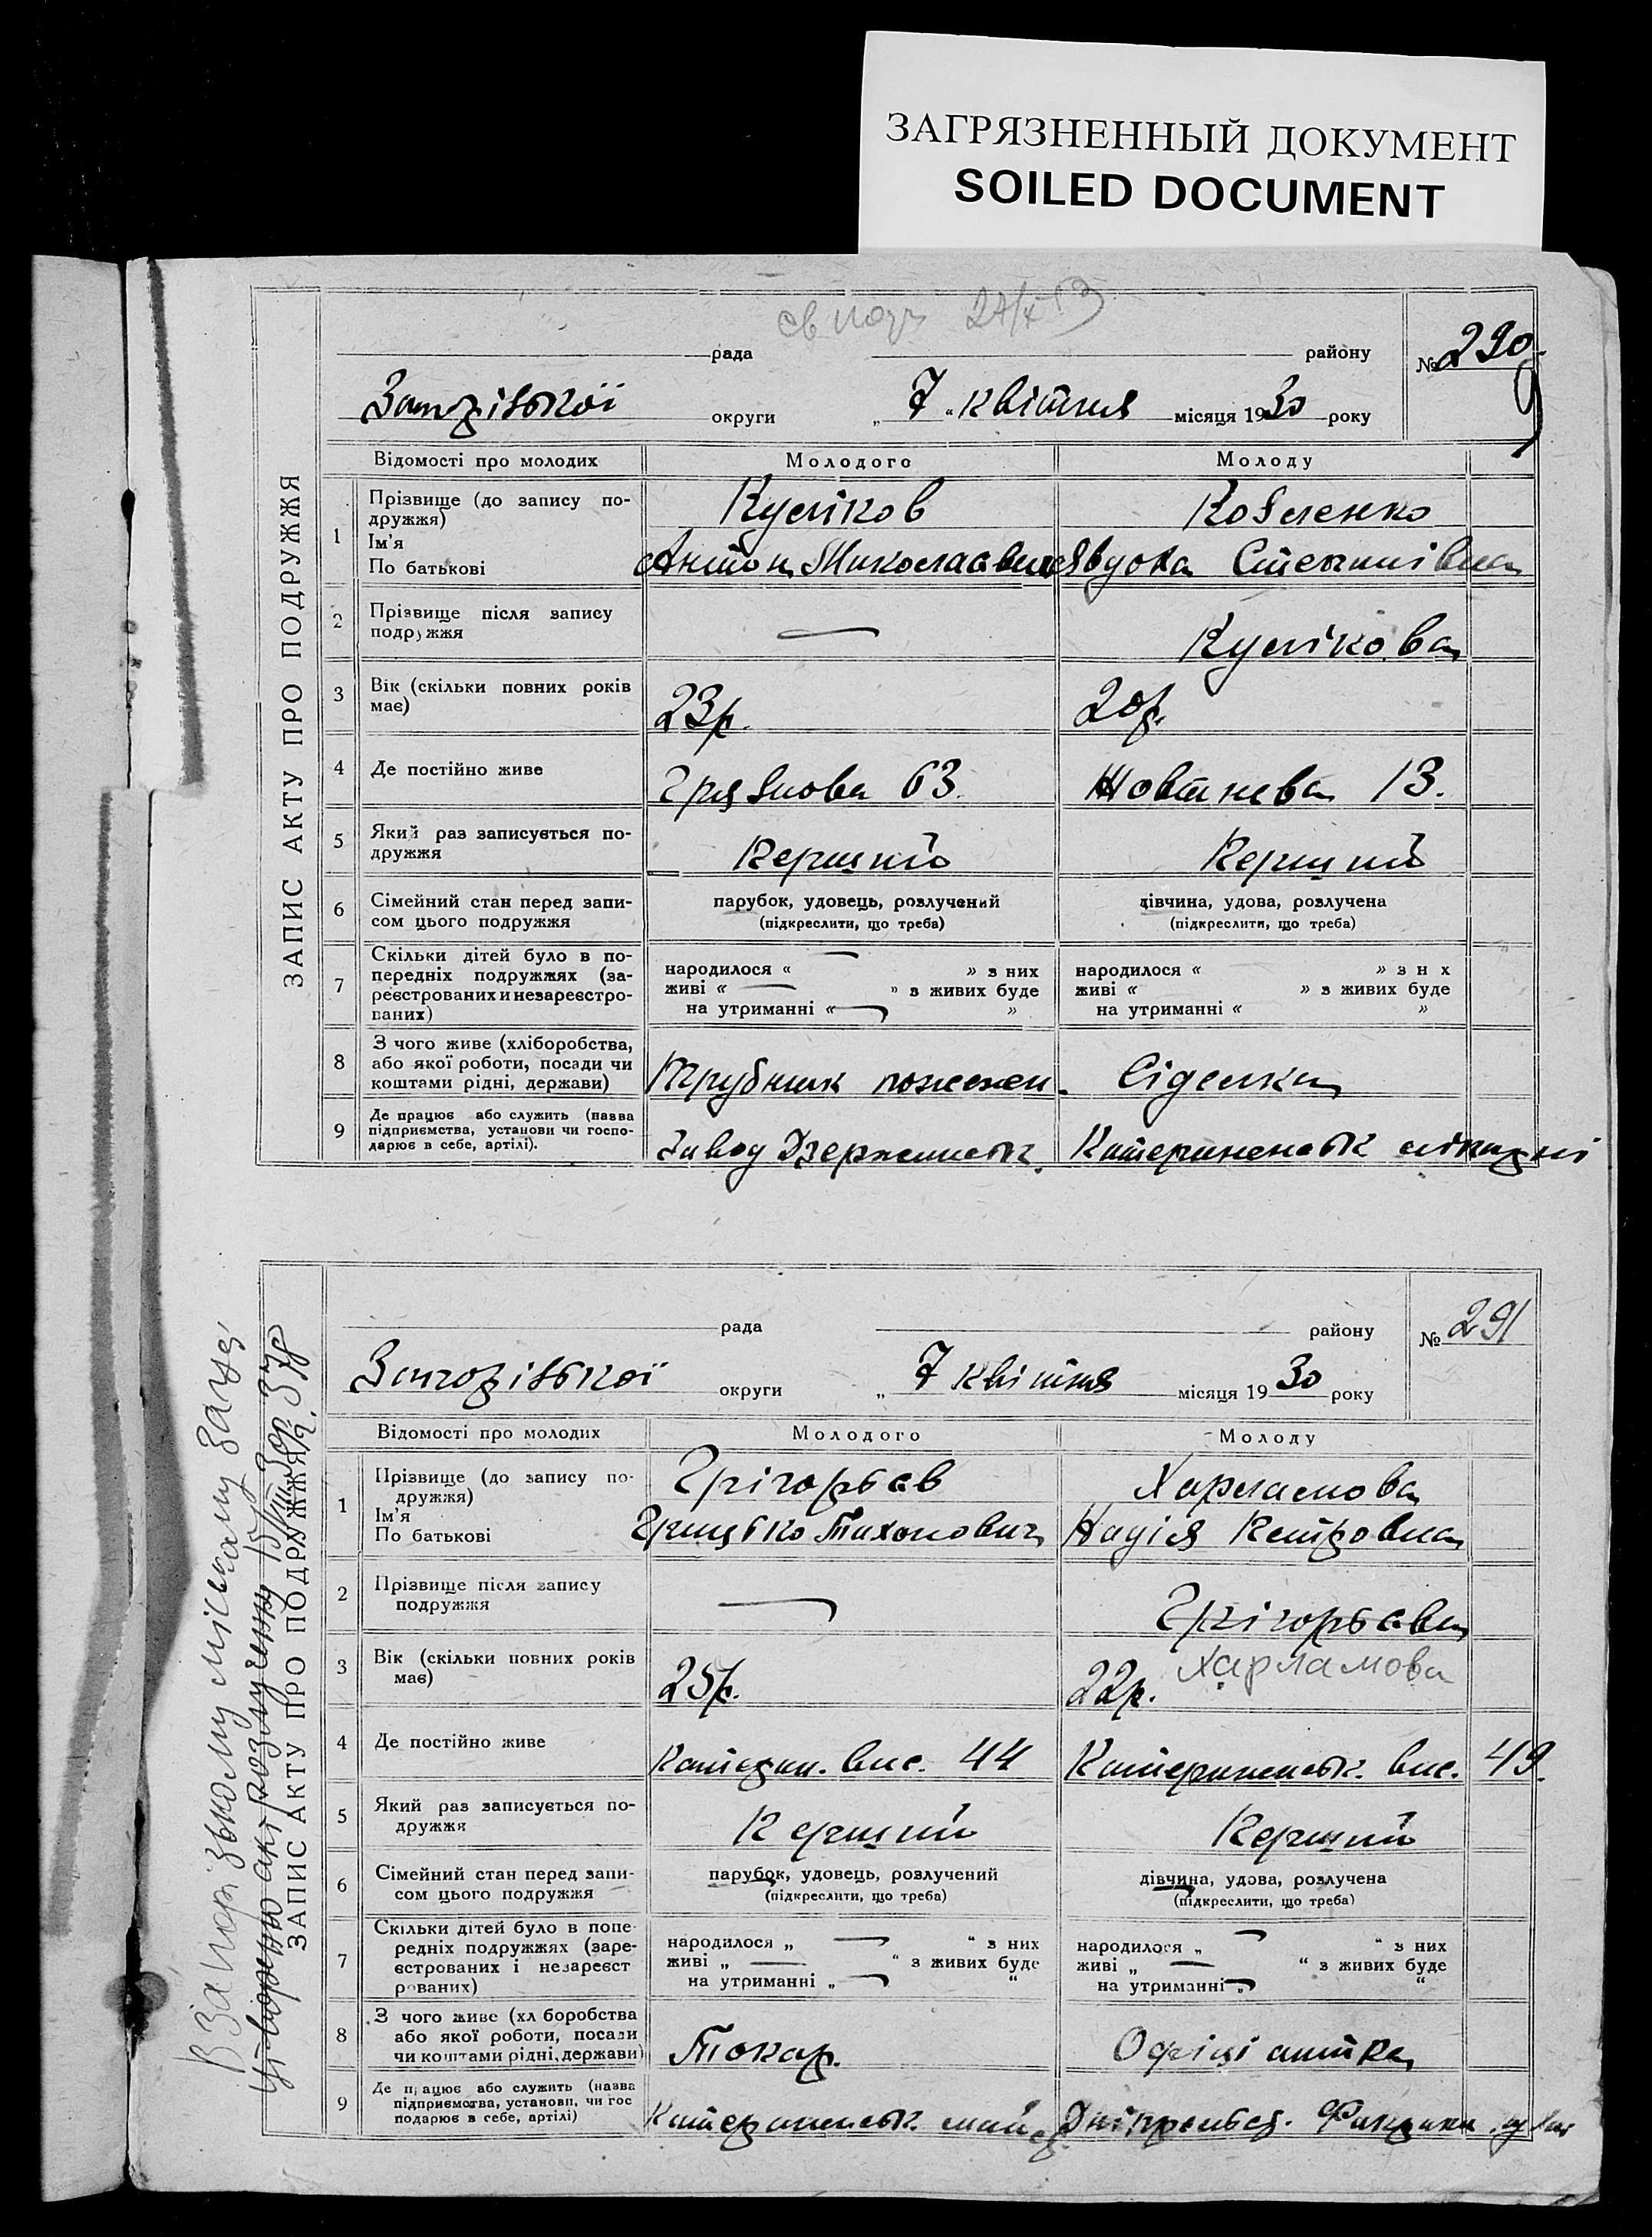 ЗАГРЯЗНЕННЫЙ ДОКУМЕНТ
SOILED DOCUMENT
ЗАПИС АКТУ ПРО ПОДРУЖЖЯ
рада району № 290
округи „ 7 “ квітня місяця 1930 року
Відомості про молодих Молодого Молоду
1 Прізвище (до запису по-
дружжя) Куліков Ковленко
Ім'я
По батькові Антон Миколаєвич Явдоха Степанівна
2 Прізвище після запису
подружжя — Кулікова
3 Вік (скільки повних років
має) 23р. 20р.
4 Де постійно живе 63. Жовтнева 13.
5 Який раз записується по-
дружжя Перший Перший
6 Сімейний стан перед запи-
сом цього подружжя
парубок, удовець, розлучений дівчина, удова, розлучена
(підкреслити, що треба) (підкреслити, що треба)
7 Скільки дітей було в по-
передніх подружжях (за-
реєстрованих и незареєстро-
ваних)
народилося « » з них народилося « » з н х
живі « » з живих буде живі « » з живих буде
на утриманні « » на утриманні « »
8 З чого живе (хліборобства,
або якої роботи, посади чи
коштами рідні, держави) Трубник пожежн. Сіделка
9 Де працює або служить (назва
підприємства, установи чи госпо-
дарює в себе, артілі). Завод Дзержинськ. Катериненськ лікарні
ЗАПИС АКТУ ПРО ПОДРУЖЖЯ
В Запорізькому міському Загсі
утворено акт розлучення
рада району № 291
Запорізької округи „ 7 квітня місяця 1930 року
Відомості про молодих Молодого Молоду
1 Прізвище (до запису по-
дружжя) Грігорьєв Харламова
Ім'я
По батькові Грицько Тихонович Надія Петровна
2 Прізвище після запису
подружжя — Грігорьєва
Харламова
3 Вік (скільки повних років
має) 25р. 22р.
4 Де постійно живе Катерин. вис. 44 Катериненськ. вис. 49.
5 Який раз записується по-
дружжя Перший Перший
6 Сімейний стан перед запи-
сом цього подружжя
парубок, удовець, розлучений дівчина, удова, розлучена
(підкреслити, що треба) (підкреслити, що треба)
7 Скільки дітей було в попе-
редніх подружжях (заре-
єстрованих і незареєст
рованих)
народилося „ “ з них народилося „ “ з них
живі „ “ з живих буде живі „ “ з живих буде
на утриманні „ “ на утриманні „ “
8 З чого живе (хл боробства
або якої роботи, посади
чи коштами рідні, держави) Токар. Офіціантка
9 Де працює або служить (назва
підприємства, установи, чи гос
подарює в себе, артілі) Катериненськ. майс.